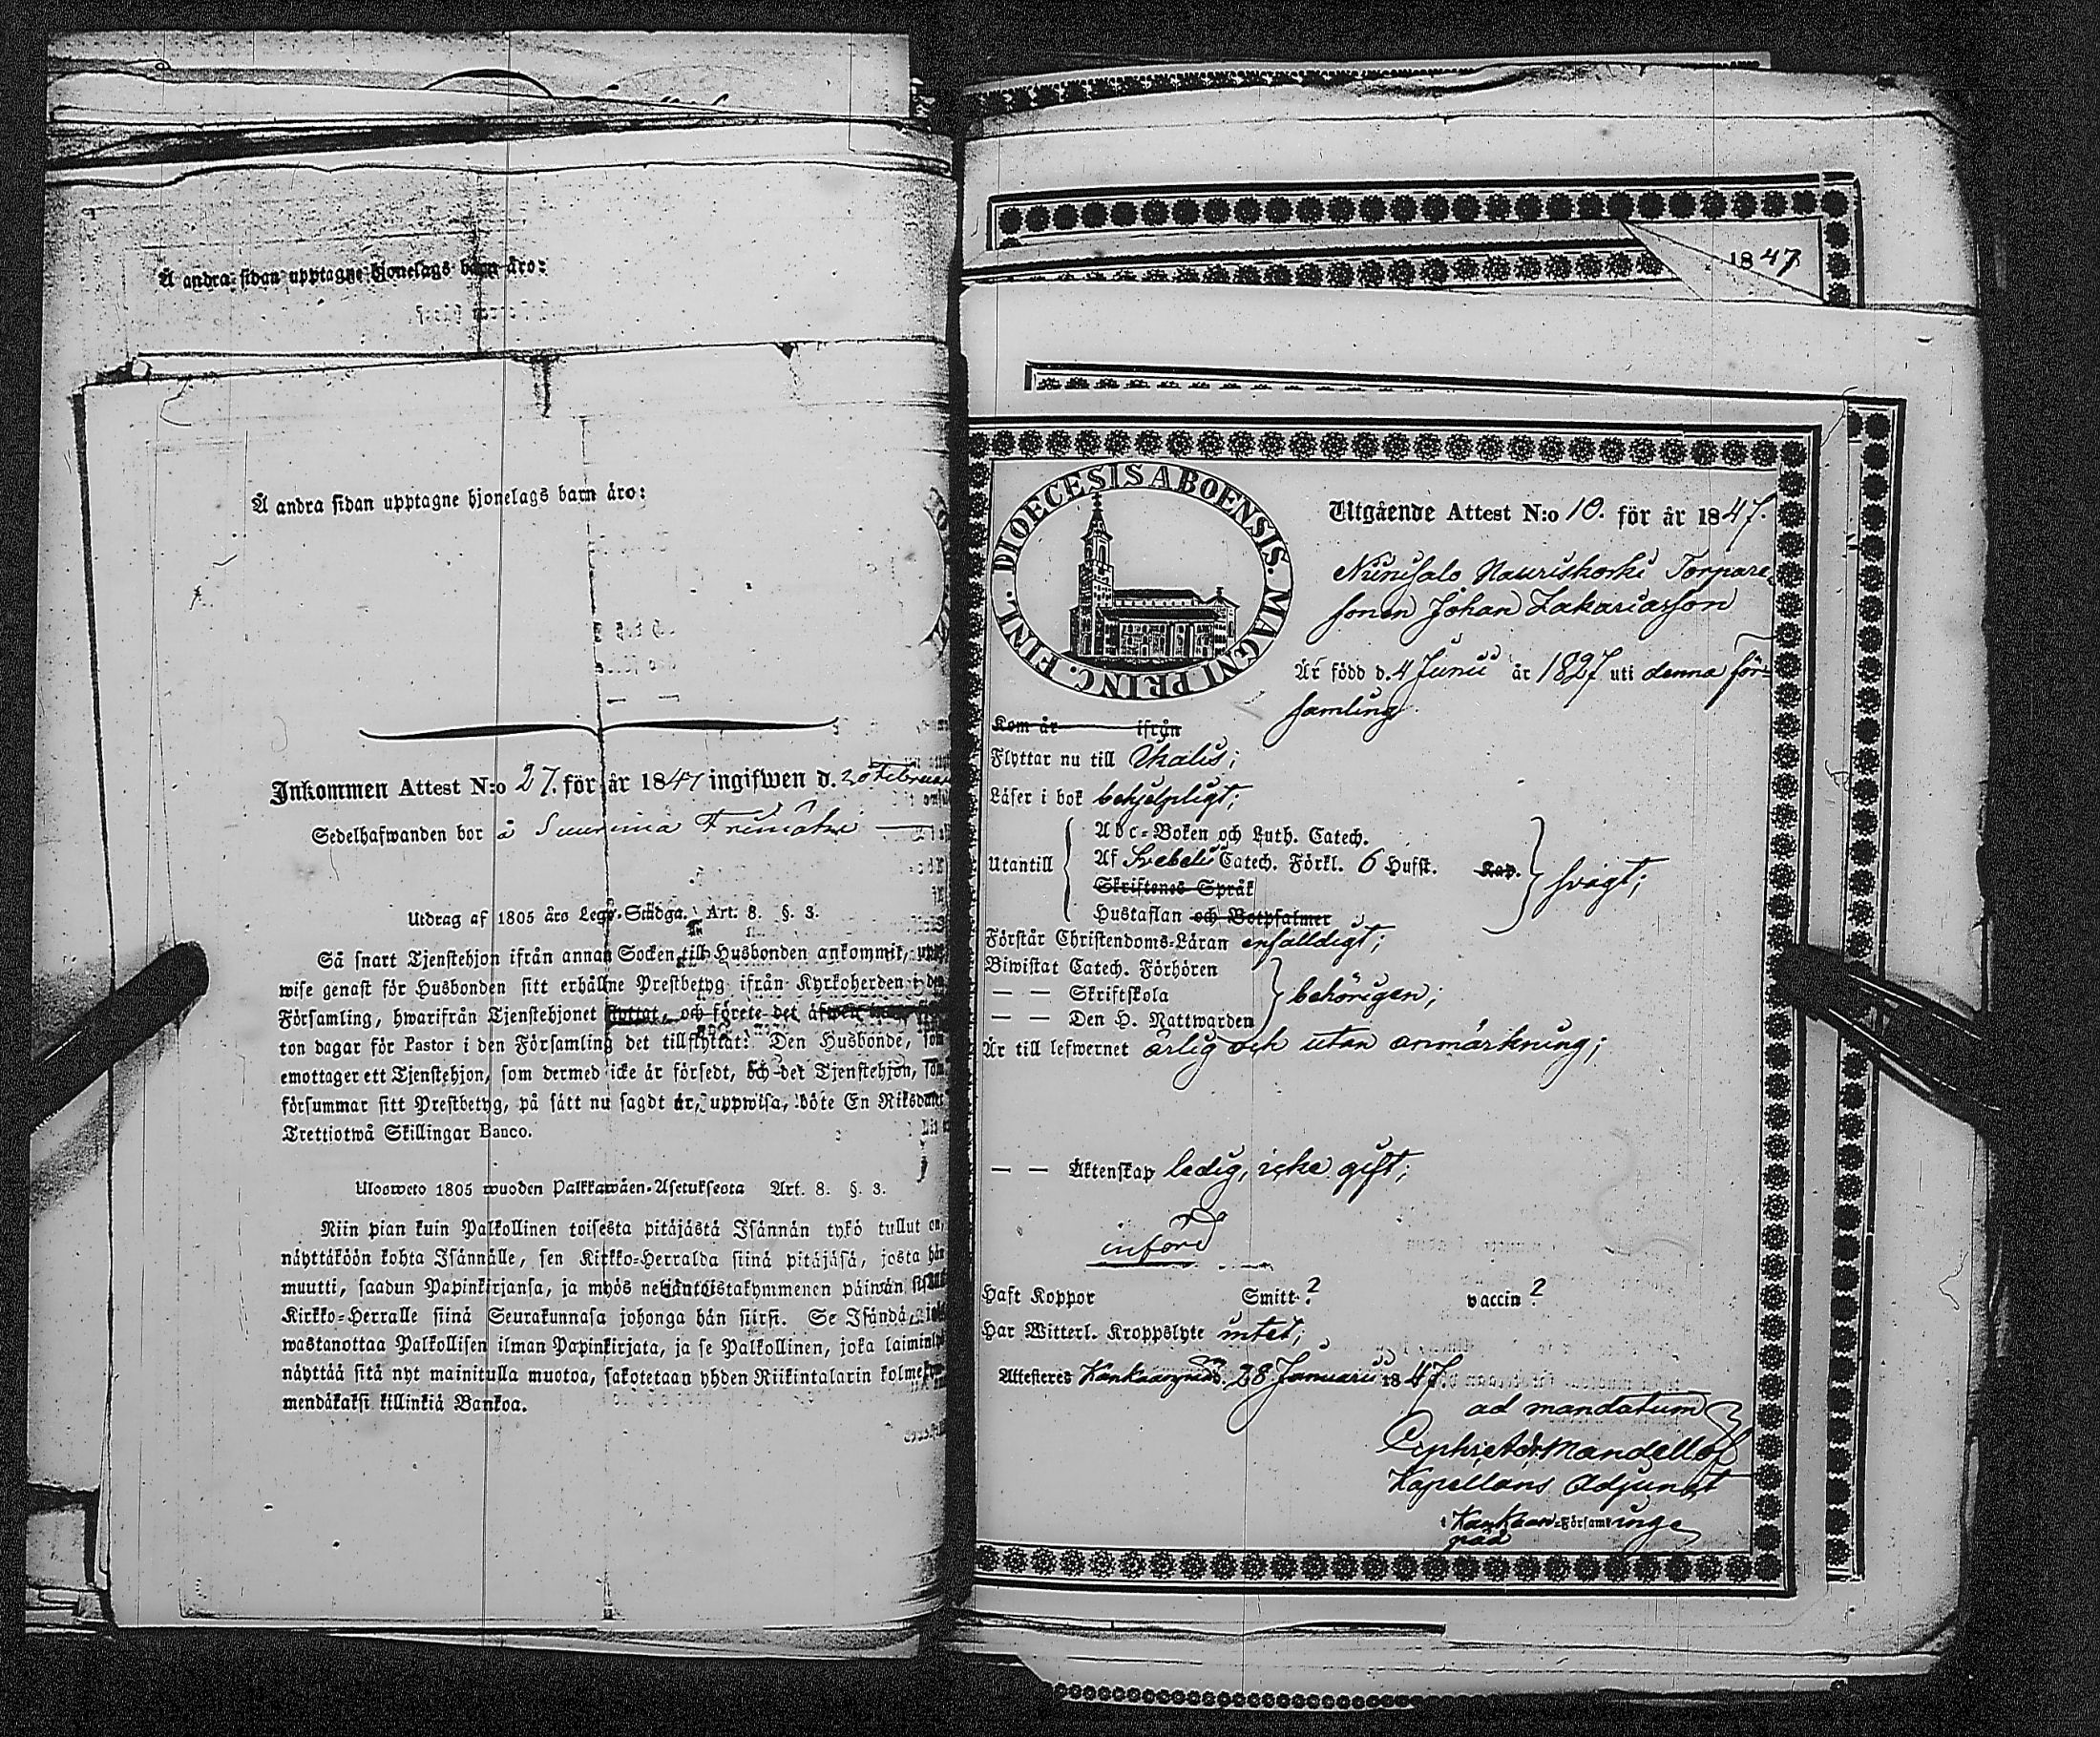 Å andra sidan upptagne hjonelags barn äro:
Å andra sidan upptagne hjonelags barn äro:
Inkommen Attest N:o 27. för år 1847 ingifwen d. 20 Februar
Sedelhafwanden bor å Suurimia
Utdrag af 1805 års Lego-Stadga. Art. 8. §. 3.
Så snart Tjenstehjon ifrån annan Socken till Husbonden ankommit, upp
wise genast för Husbonden sitt erhållne Prestbetyg ifrån Kyrkoherden i den
Församling, hwarifrån Tjenstehjonet flyttat, och förete det äfwen inom fjor
ton dagar för Pastor i den Församling det tillflyttat. Den Husbonde, som
emottager ett Tjenstehjon, som dermed icke är försedt, och det Tjenstehjon, som
försummar sitt Prestbetyg, på sätt nu sagdt är, uppwisa, böte En Riksdaler
Trettiotwå Skillingar Banco.
Uloswcto 1805 wuoden Palkkawäen-Asetuksesta Art. 8. §. 3.
Niin pian kuin Palkollinen toisesta pitäjästä Isännän tykö tullut on,
näyttäköön kohta Isännälle, sen Kirkko-Herralda siinä pitäjäsä, josta hän
muutti, saadun Papinkirjansa, ja myös neljäntoistakymmenen päiwän sisällä
Kirkko-Herralle siinä Seurakunnasa johonga hän siirsi. Se Isändä, joka
wastanottaa Palkollisen ilman Papinkirjata, ja se Palkollinen, joka laiminlyö
näyttää sitä nyt mainitulla muotoa, sakotetaan yhden Riikintalarin kolmekym-
mendäkaksi killinkiä Bankoa.
1847.
DIOECESIS ABOENSIS. MAGNI PRINC. FINL.
Utgående Attest N:o 10. för år 1847.
Niinisalo Nauriskoski Torpare-
sonen Johan Zakariasson
Är född d. 4 Junii år 1827 uti denna för-
samling.
Kom år ifrån
Flyttar nu till Ikalis;
Läser i bok behjelpligt;
Utantill
Abc-Boken och Luth. Catech.
Af Svebelii Catech. Förkl. 6 Hufst. Kap.
Skriftenes Språk
Hustaflan och Botpsalmer
svagt;
Förstår Christendoms-Läran enfalldigt;
Biwistat Catech. Förhören
— — Skriftskola
— — Den H. Nattwarden
behörigen;
Är till lefwernet ärlig och utan anmärkning;
— — Äktenskap ledig, icke gift;
införd
Haft Koppor Smitt. ? vaccin ?
Har Witterl. Kroppslyte intet;
Attesteres Kankaanpää d. 28 Januarii 1847.
ad mandatum
Mandellöf
Kapellans Adjunct
i Kankaan-Församlinge
pää